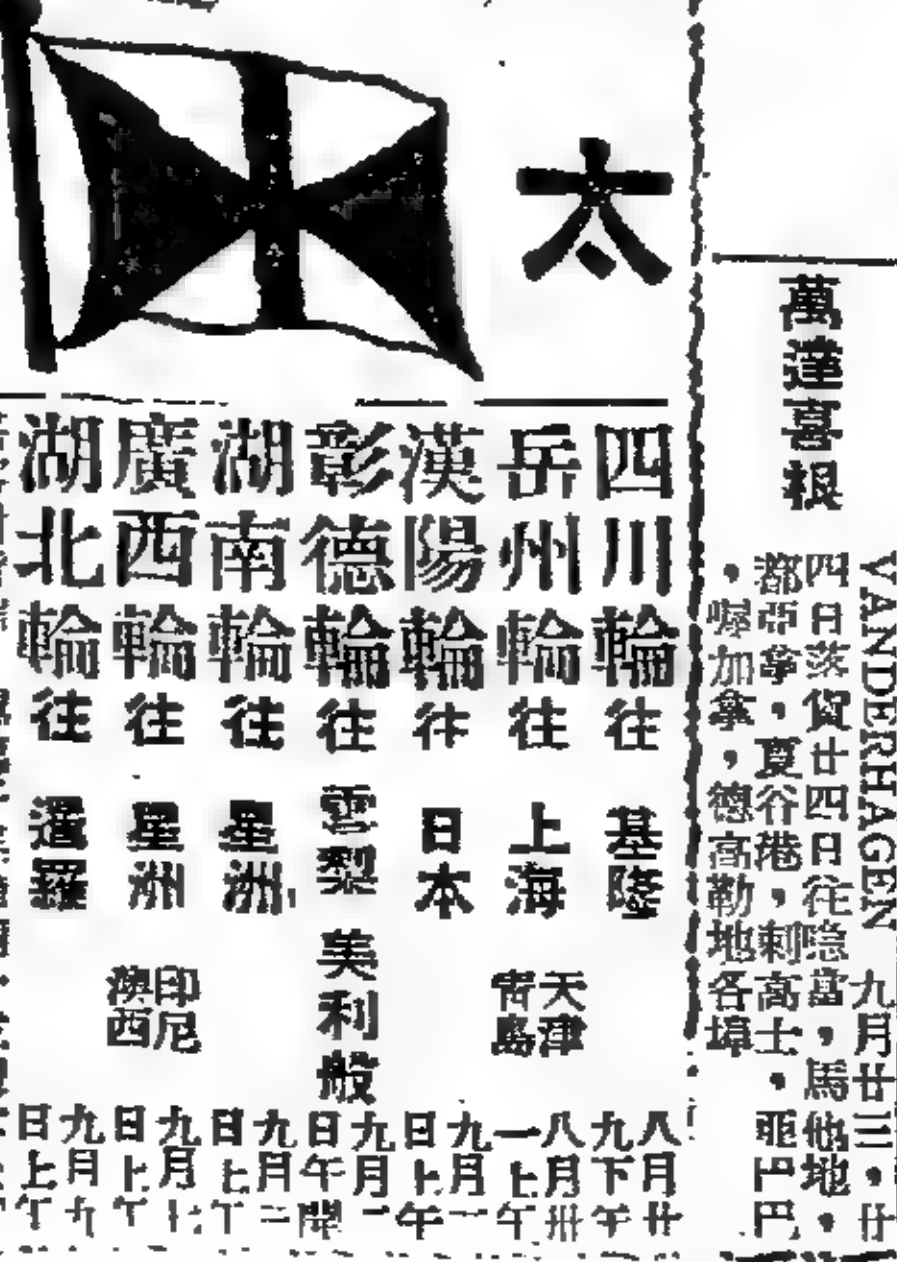 萬達喜根
VANDERHAGEN 九月廿三・廿
四日落貨廿四日往隐當，馬他地・
都亞拿・夏谷港，刺高士・亜巴巴
，喔加拿，德高勒地各埠
太
四川輪往 基隆 八月廿九下午
岳州輪往 上海 天津 青島 八月卅一上午
漢陽輪往 日本 九月一日上午
彰德輪往 雲梨 美利般 九月一日午開
湖南輪往 星洲 九月二日上午
廣西輪往 星洲 印尼 澳西 九月七日上午
湖北輪往 暹羅 九月九日上午